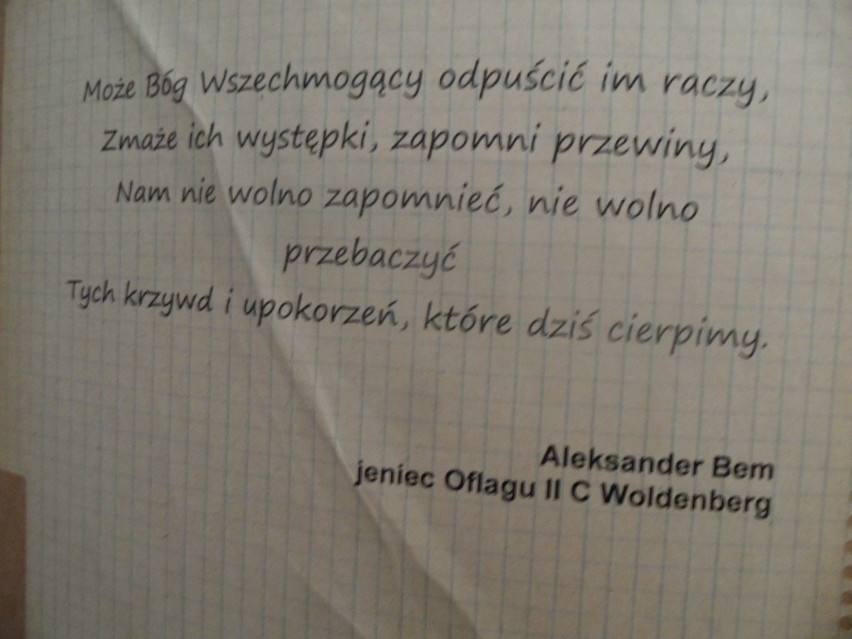 Może Bóg Wszechmogący odpuścić im raczy,
Zmaże ich występki, zapomni przewiny,
Nam nie wolno zapomnieć, nie wolno
przebaczyć
Tych krzywd i upokorzeń, które dziś cierpimy.
Aleksander Bem
jeniec Oflagu II C Woldenberg